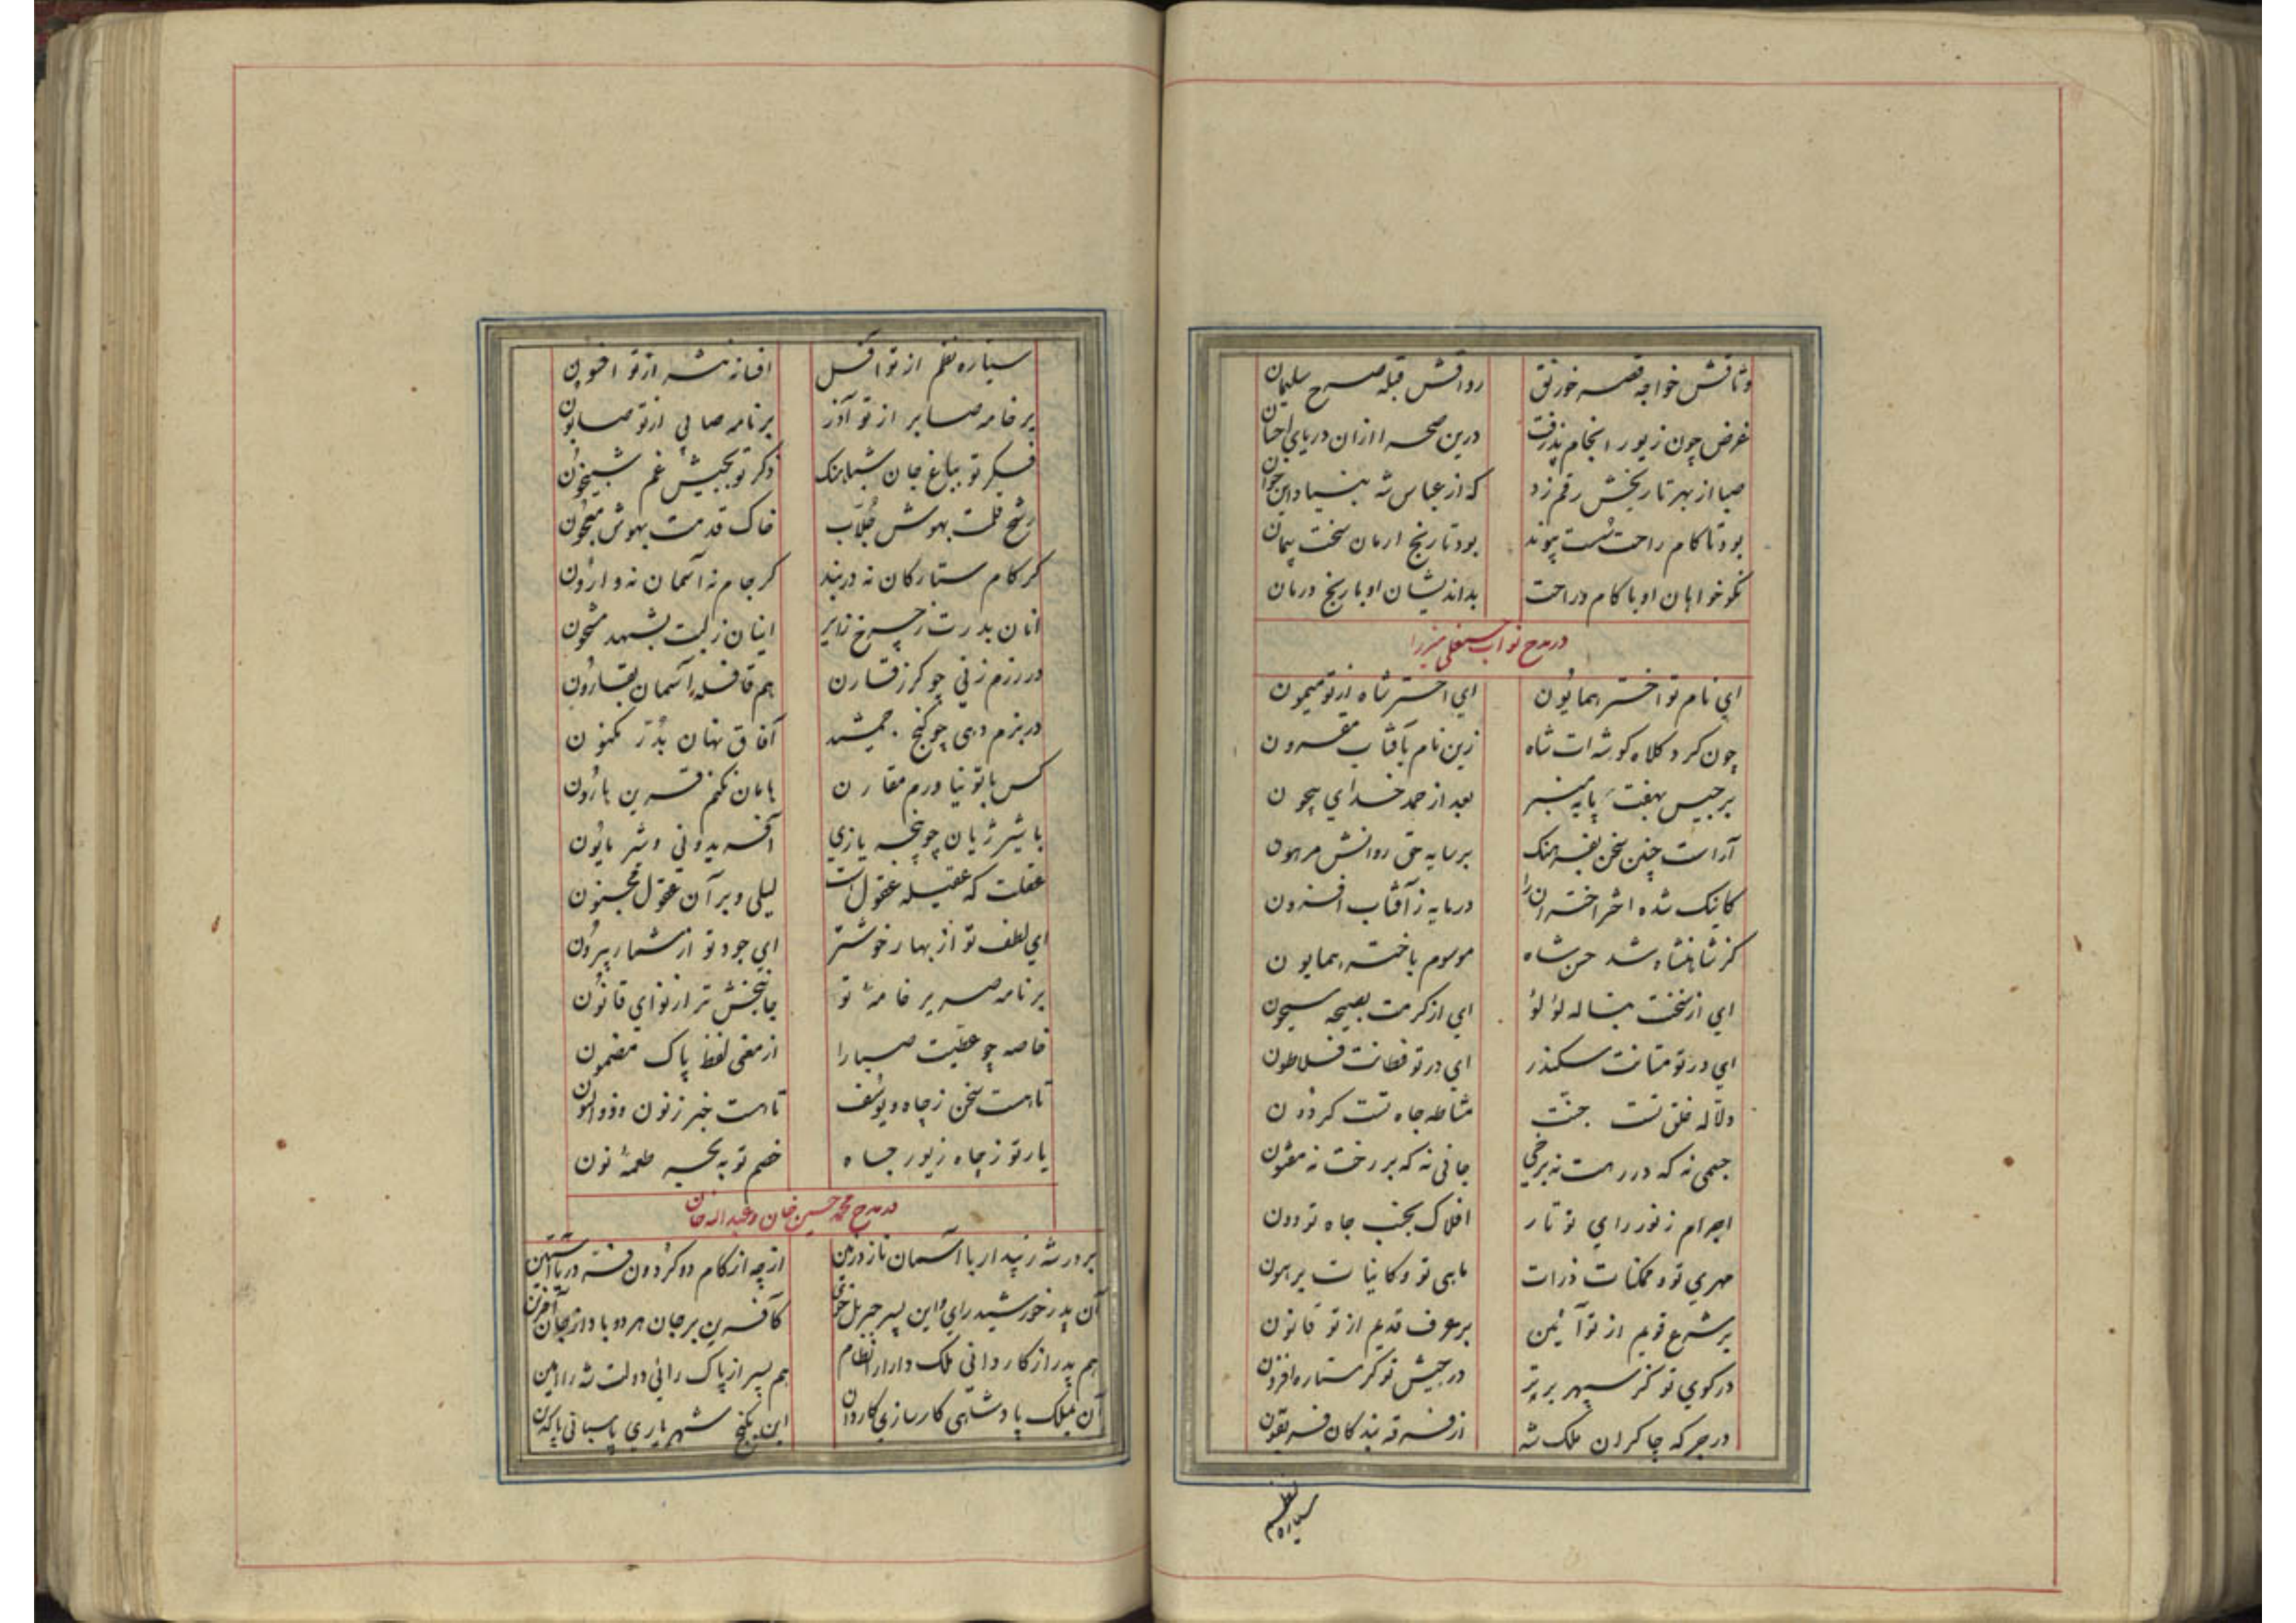 وثاقش خواجه قصر خورنق رواقش قبله صرح سلیمان
غرض چون زیور انجام پذرفت درین صحرا ازان دریای احسان
صبا از بهر تاریخش رقم زد که از عباس شه بنیاد این خوان
بود تا کام راحت سست پیوند بود تا رنج ارمان سخت پیمان
نکو خواهان او با کام و راحت بداندیشان او با رنج و درمان
در مدح نواب حسنعلی میرزا
ای نام تو اختر همایون ای اختر شاه از تو میمون
چون کرد کلاه کوشه ات شاه زین نام بآفتاب مقرون
برجیس بهفت پایه منبر بعد از حمد خدای بیچون
آراست چنین سخن بفرهنک بر سایه حق روانش مرهون
کاینک شده اختر اختران را در مایه ز آفتاب افزون
کز شاهنشاه شد حسن شاه موسوم باختر همایون
ای از سخنت بناله لؤلؤ ای از کرمت بصیحه سیحون
ای در تو متانت سکندر ای در تو فطانت فلاطون
دلاله خلق تست جنت مشاطه جاه تست کردون
جسمی نه که در رهت نه برخی جانی نه که بر رخت نه مفتون
اجرام ز نور رای تو تار افلاک بجنب جاه تو دون
مهری تو و ممکنات ذرات ماهی تو و کاینات پرهون
بر شرع قویم از تو آئین بر عرف قدیم از تو قانون
در کوی تو کز سپهر برتر در جیش تو کز ستاره افزون
در جرکه چاکران ملک شه از فرقه بندکان فریقون
سیاره نظم
سیاره نظم از تو آفل افسانه نثر از تو افسون
بر خامه صابر از تو آذر بر نامه صابی از تو صابون
فکر تو بباغ جان شباهنک ذکر تو بجیش غم شبیخون
رشح قلمت بهوش جلاب خاک قدمت بهوش معجون
کر کام ستارکان نه در بند کر جام نه آسمان نه وارون
آنان بدرت ز چرخ زایر اینان ز لبت بشهد مشحون
در رزم زنی چو کرز قارن هم قافله آسمان بقارون
در بزم دهی چو کنج جمشید آفاق نهان بدر مکنون
کس با تو نیاورم مقارن هامان نکنم قرین هارون
با شیر ژیان چو پنجه یازی آفریدونی و شیر هایون
عقلت که عقیله عقول است لیلی و بر آن عقول مجنون
ای لطف تو از بهار خوشتر ای جود تو از شمار بیرون
بر نامه صریر خامه تو جانبخش تر از نوای قانون
خاصه چو عطیت صبا را از معنی لفظ پاک مضمون
تا هست سخن ز چاه و یوسف تا هست خبر ز نون و ذوالنون
یار تو ز چاه زیور جاه خصم تو به بحر طعمه نون
در مدح محمد حسین خان و عبدالله خان
بر در شه زین پدر با آسمان نازد زمین ازچه از کام دو کردون فتنه در یا آستین
آن پدر خورشید رای و این پسر جبریل خوی کآفرین بر جان هر دو باد از جان آفرین
هم پدر از کاردانی ملک دارا را نظام هم پسر از پاک رائی دولت شه را امین
آن بملک پادشاهی کارسازی کاردان این بکنج شهریاری پاسبانی پاکدین